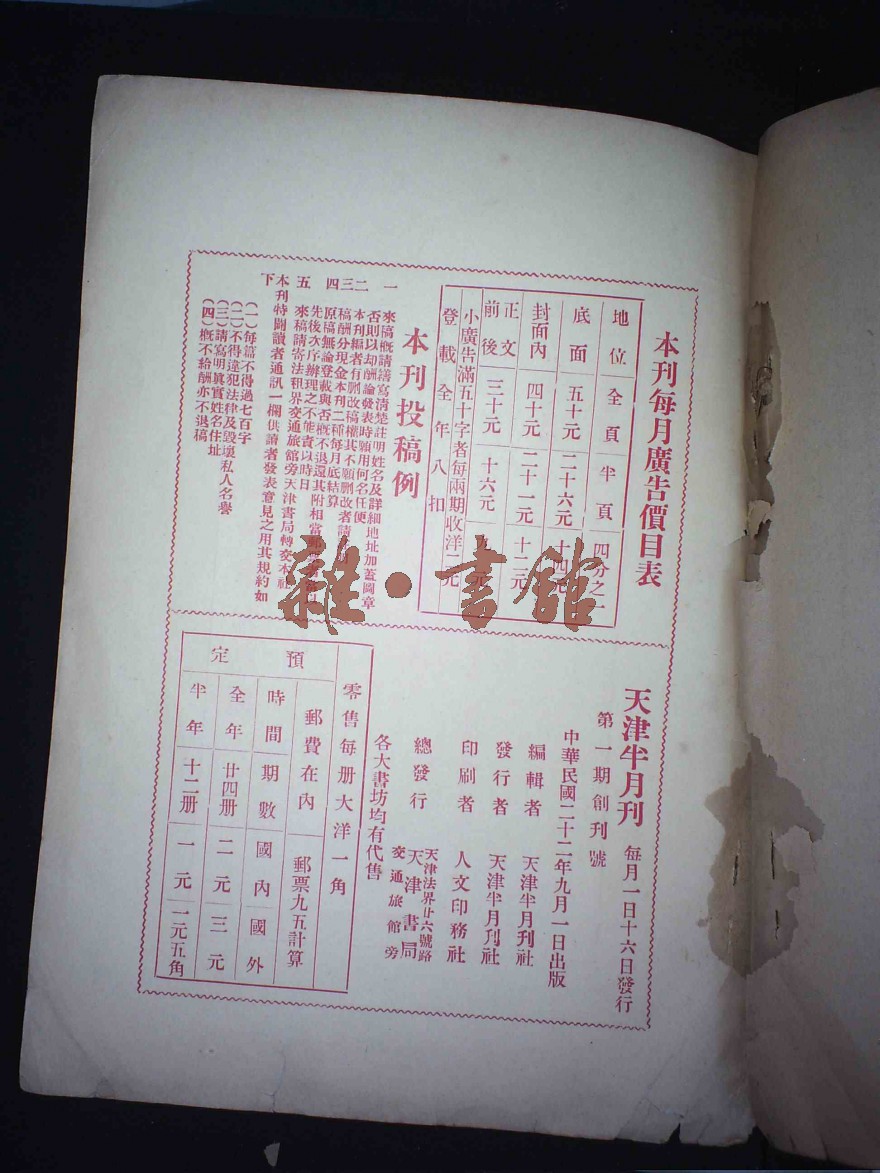 本刊每月廣告價目表
地位 全頁 半頁 四分之一
底面 五十元 二十六元 十四元
封面內 四十元 二十一元 十二元
正文前後 三十元 十六元 元
小廣告滿五十字者每兩期收洋一元
登載全年八扣
本刊投稿例
一 來稿概請謄寫清楚註明姓名及詳細地址加蓋圖章
否則以却酬論發表時願用何名任便
二 本刊編者有刪改稿權其不願刪改者請
三 稿酬分現金本刊二種每月底結算
四 原稿無論登載與否概不退還其附相當郵
先後次序辦理之不能責以時日
五 來稿請寄法租界交通旅館旁天津書局轉交本社
本刊特闢讀者通訊一欄供讀者發表意見之用其規約如
下
(一)每篇不得過七百字
(二)不得違犯法律及毀壞私人名譽
(三)請寫明眞實姓名住址
(四)概不給酬亦不退稿
天津半月刊 每月一日十六日發行
第一期創刊號
中華民國二十二年九月一日出版
編輯者 天津半月刊社
發行者 天津半月刊社
印刷者 人文印務社
總發行 天津法界廿六號路 天津書局 交通旅館旁
各大書坊均有代售
零售每册大洋一角
郵費在內 郵票九五計算
預定
時間 期數 國內 國外
全年 廿四册 二元 三元
半年 十二册 一元 一元五角
雜·書館